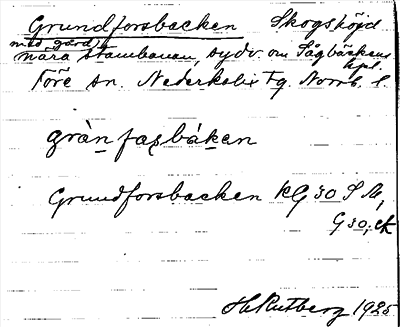 Grundforsbacken Skogshöjd
med gård,
nära stambanan, sydv. om Sågbäckens
hpl.
Töre sn. Nederkalix Tg. Norrb. l.
gràn fasbákan
Grundforsbacken KG 30 S M,
G 30, ek
H. Rutberg 1925